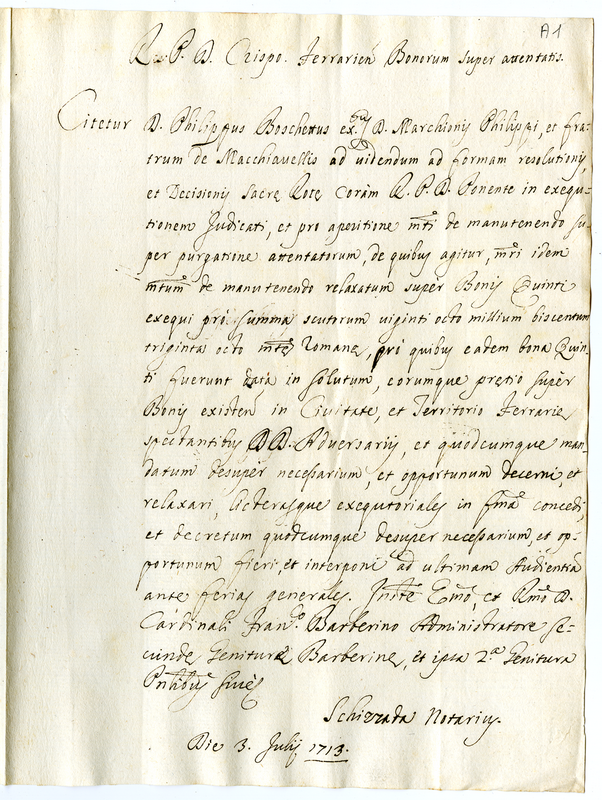 A1
R. P. D. Crispo. Ferrarien Bonorum super attentatis.
Citetur D. Philippus Boschettus exr D. Marchionis Philippi, et fra=
trum de Macchiavellis ad videndum ad formam resolutionis,
et Decisionis Sacre Rote Coràm R. P. D. Ponente in exequ=
tionem Judicati, et pro aperitione mti de manutenendo su=
per purgatione attentatorum, de quibus agitur, mri idem
mtum de manutenendo relaxatum super Bonis Quinti
exequi prò summa scutorum viginti octo millium biscentum
triginta octo mte Romane, prò quibus eadem bona Quin=
ti fuerunt data in solutum, eorumque pretio supèr
Bonis existen in Civitate, et Territorio Ferrarie
spectantibus DD. Adversariis, et quodcumque man=
datum desuper necessarium, et opportunum decerni et
relaxari, literasque exequtoriales in fma concedi,
et decretum quodcumque desuper necessarium, et op=
portunum fieri, et interponi ad ultimam Audientia
ante ferias generales. Inste Emo, et Rmo D.
Cardinali Franco Barberino Administratore se=
cunde Geniture Barberine, et ipsa 2.a Genitura
Pntibus sive
Schizzada Notarius.
Die 3. Julij 1713.